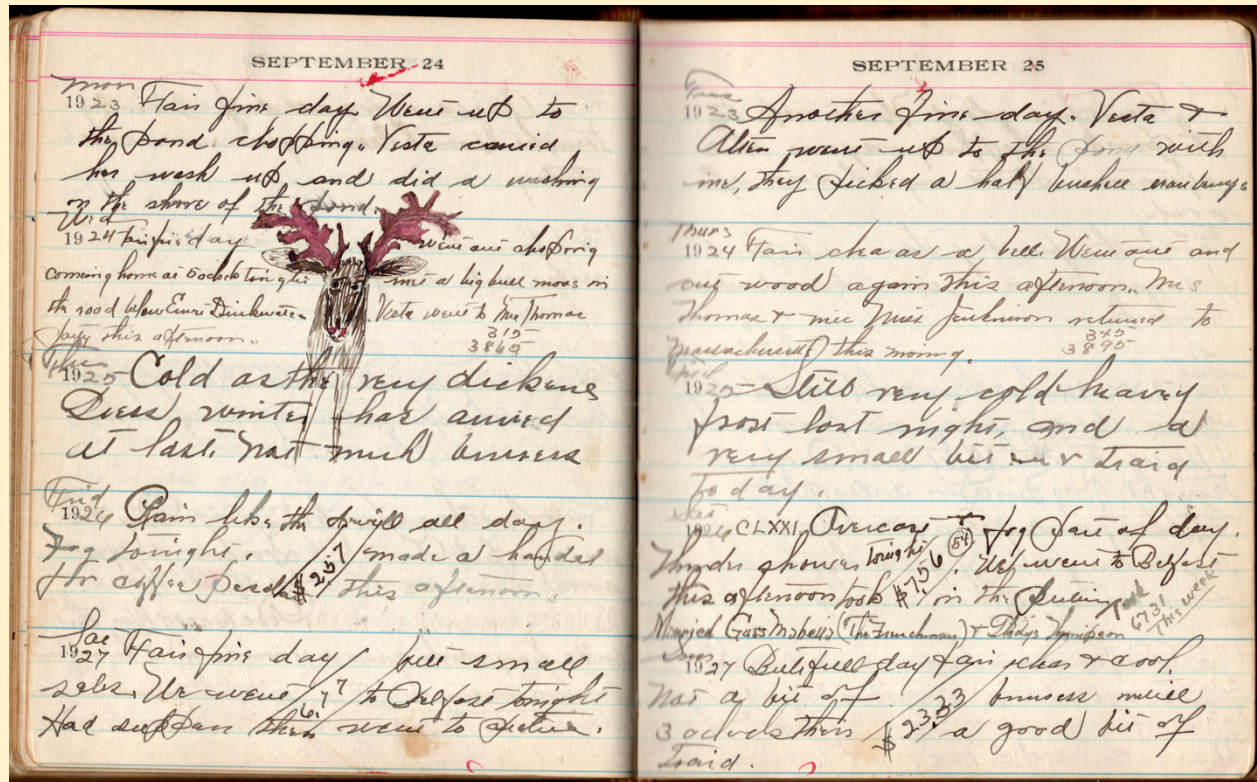 SEPTEMBER 24
Mon
1923 Fair fine day. Went up to
the pond chopping. Vesta carried
her wash up and did a washing
on the shore of the pond.
Wed
1924 Fair fine day went out chopping
coming home at 5 oclock tonight met a big bull moose in
the road below Drinkwater. Vesta went to Mrs Thomas
this afternoon.
315
3865
1925 Cold as the very dickens
Guess winter has arrived
at last. Not much buisness
Frid
1926 Rain like the devill all day.
Fog tonight. made a handel
for coffee $2.57 this afternoon.
Sat
1927 Fair fine day but small
sales. We went 6.77 to Belfast tonight
Had supper then went to picture.
SEPTEMBER 25
Tues
1923 Another fine day. Vesta &
went up to the pond with
me, they picked a half bushell cranburys
Thurs
1924 Fair clear as a bell. Went out and
cut wood again this afternoon. Mrs
Thomas & Miss returned to
Massachusetts this morning.
3895
1925 Still very cold heavy
frost last night, and a
very small bit of traid
today.
Sat
1926 CLXXI Overcast & fog part of day.
Thunder shower tonight. We went to Belfast
this afternoon took $7.56 in the
54
Took
6731
This week
Married Guss (The Frenchman) & Gladys Thompson
Sun
1927 Butifull day fair clear & cool.
Not a bit of buisness untill
3 oclock then $23.33 a good bit of
traid.